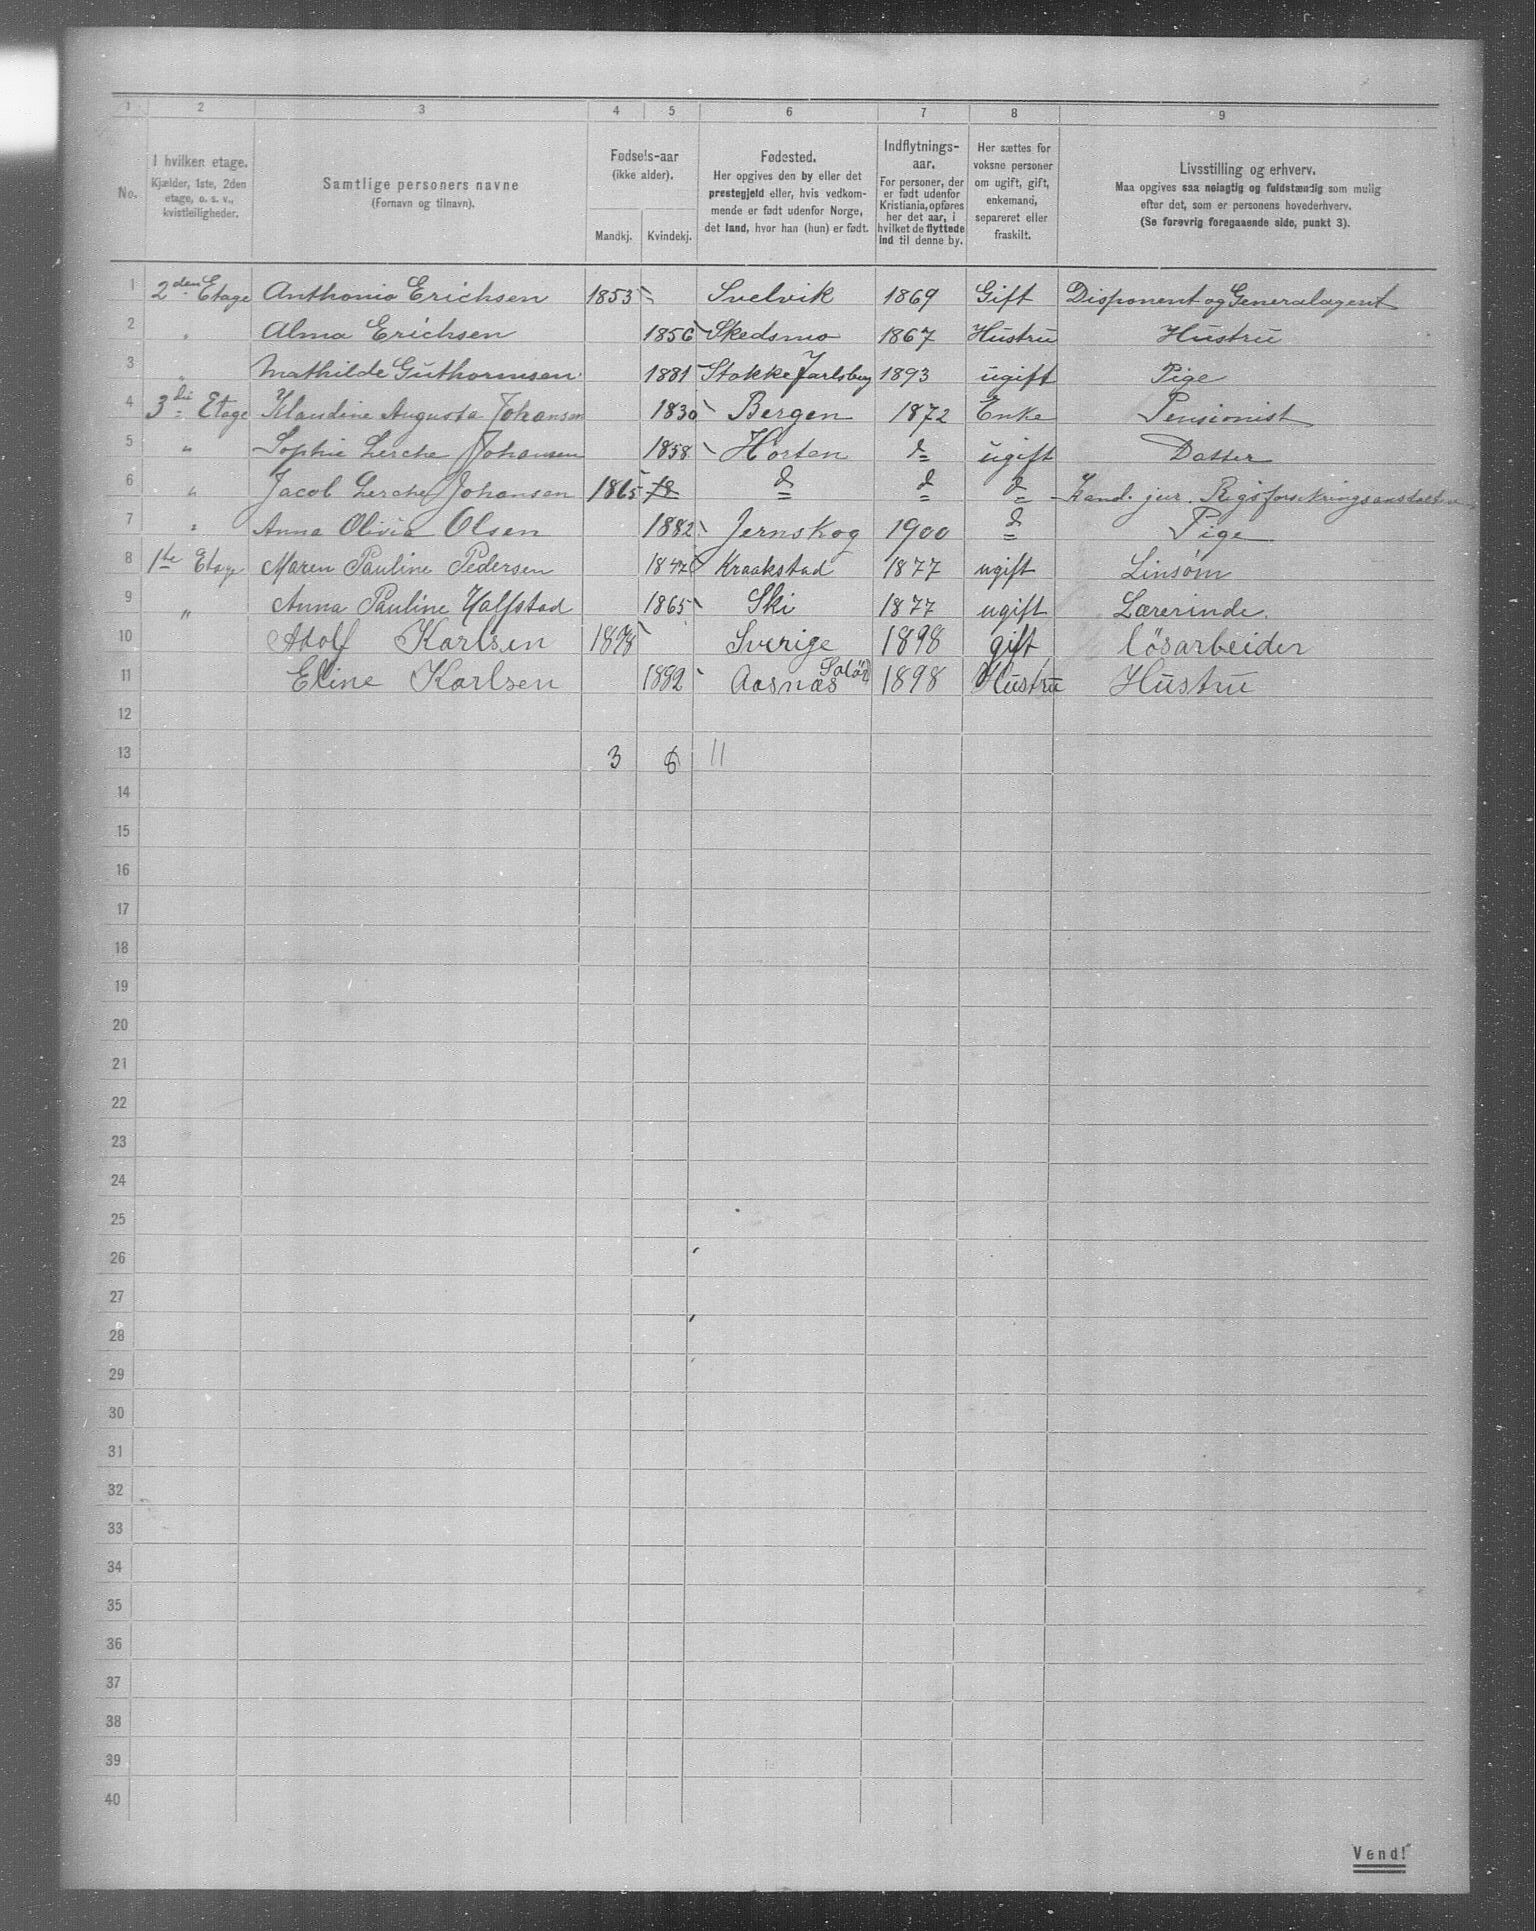 1 2 3 4 5 6 7 8 9
No.
I hvilken etage.
Kjælder, 1ste, 2den
etage, o. s. v.,
kvistleiligheder.
Samtlige personers navne
(Fornavn og tilnavn).
Fødsels-aar
(ikke alder).
Mandkj. Kvindekj.
Fødested.
Her opgives den by eller det
prestegjeld eller, hvis vedkom-
mende er født udenfor Norge,
det land, hvor han (hun) er født.
Indflytnings-
aar.
For personer, der
er født udenfor
Kristiania, opføres
her det aar, i
hvilket de flyttede
ind til denne by.
Her sættes for
voksne personer
om ugift, gift,
enkemand,
separeret eller
fraskilt.
Livsstilling og erhverv.
Maa opgives saa nøiagtig og fuldstændig som mulig
efter det, som er personens hovederhverv.
(Se forøvrig foregaaende side, punkt 3).
1 2den Etage Anthonio Erichsen 1853 Svelvik 1869 Gift Disponent og Generalagent
2 " Alma Erichsen 1856 Skedsmo 1867 Hustru Hustru
3 " Mathilde Guthormsen 1881 Stokke Jarlsberg 1893 ugift Pige
4 3die Etage Klaudine Augusta Johansen 1830 Bergen 1872 Enke Pensionist
5 " Sophie Lerche Johansen 1858 Horten d= ugift Datter
6 " Jacob Lerche Johansen 1865 18 d= d= d= Kand. jur. Rigsforsikringsanstalten
7 " Anna Olivia Olsen 1882 Jernskog 1900 d= Pige
8 1ste Etage Maren Pauline Pedersen 1842 Kraakstad 1877 ugift Linsøm
9 " Anna Pauline Halfstad 1865 Ski 1877 ugift Lærerinde.
10 Adolf Karlsen 1878 Sverige 1898 gift lösarbeider
11 Eline Karlsen 1882 Aasnæs Solör 1898 Hustru Hustru
12
13 3 8 11
14
15
16
17
18
19
20
21
22
23
24
25
26
27
28
29
30
31
32
33
34
35
36
37
38
39
40
Vend!